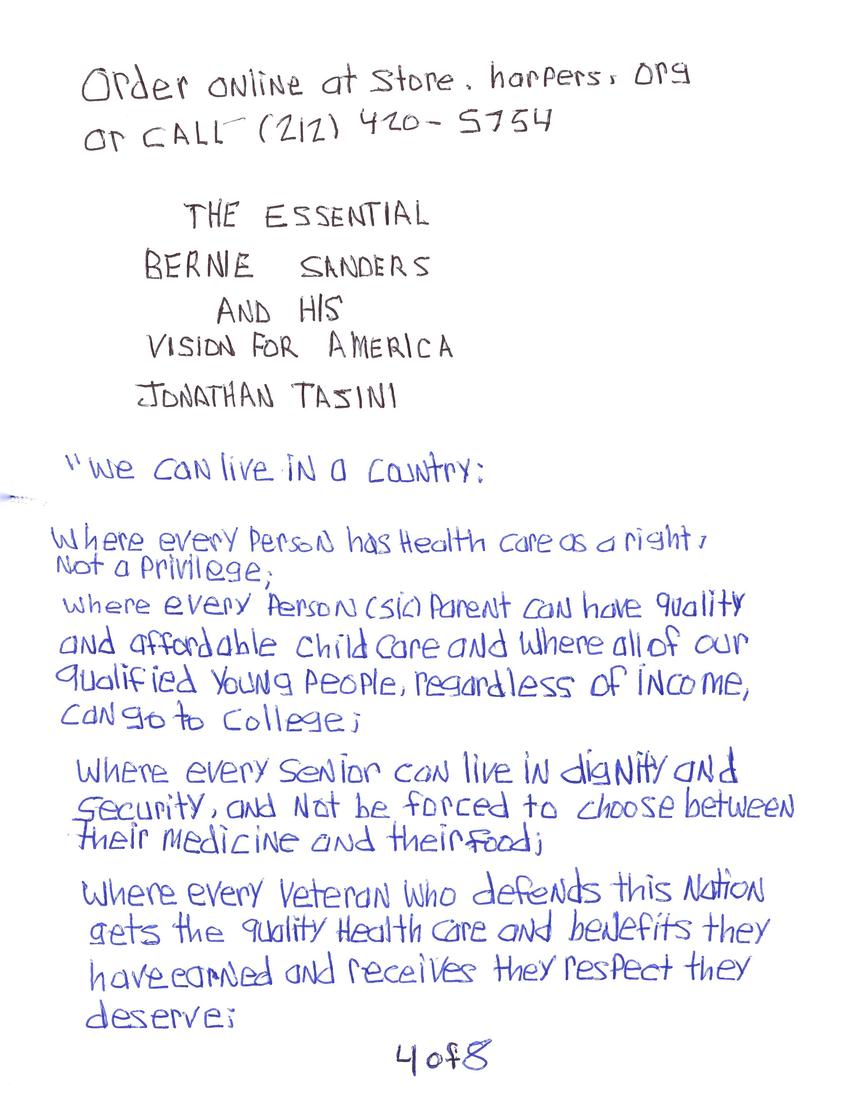 Order online at Store. harpers. org
or CALL (212) 420-5754
THE ESSENTIAL
BERNIE SANDERS
AND HIS
VISION FOR AMERICA
JONATHAN TASINI
"We can live in a country:
Where every Person has Health care as a right,
Not a Privilege;
Where every Person (sic) Parent can have quality
and affordable child care and where all of our
qualified young people, regardless of income,
can go to college;
Where every senior can live in dignity and
security, and not be forced to choose between
their medicine and their food;
Where every Veteran who defends this Nation
gets the quality Health care and benefits they
have earned and receives they respect they
deserve;
4 of 8